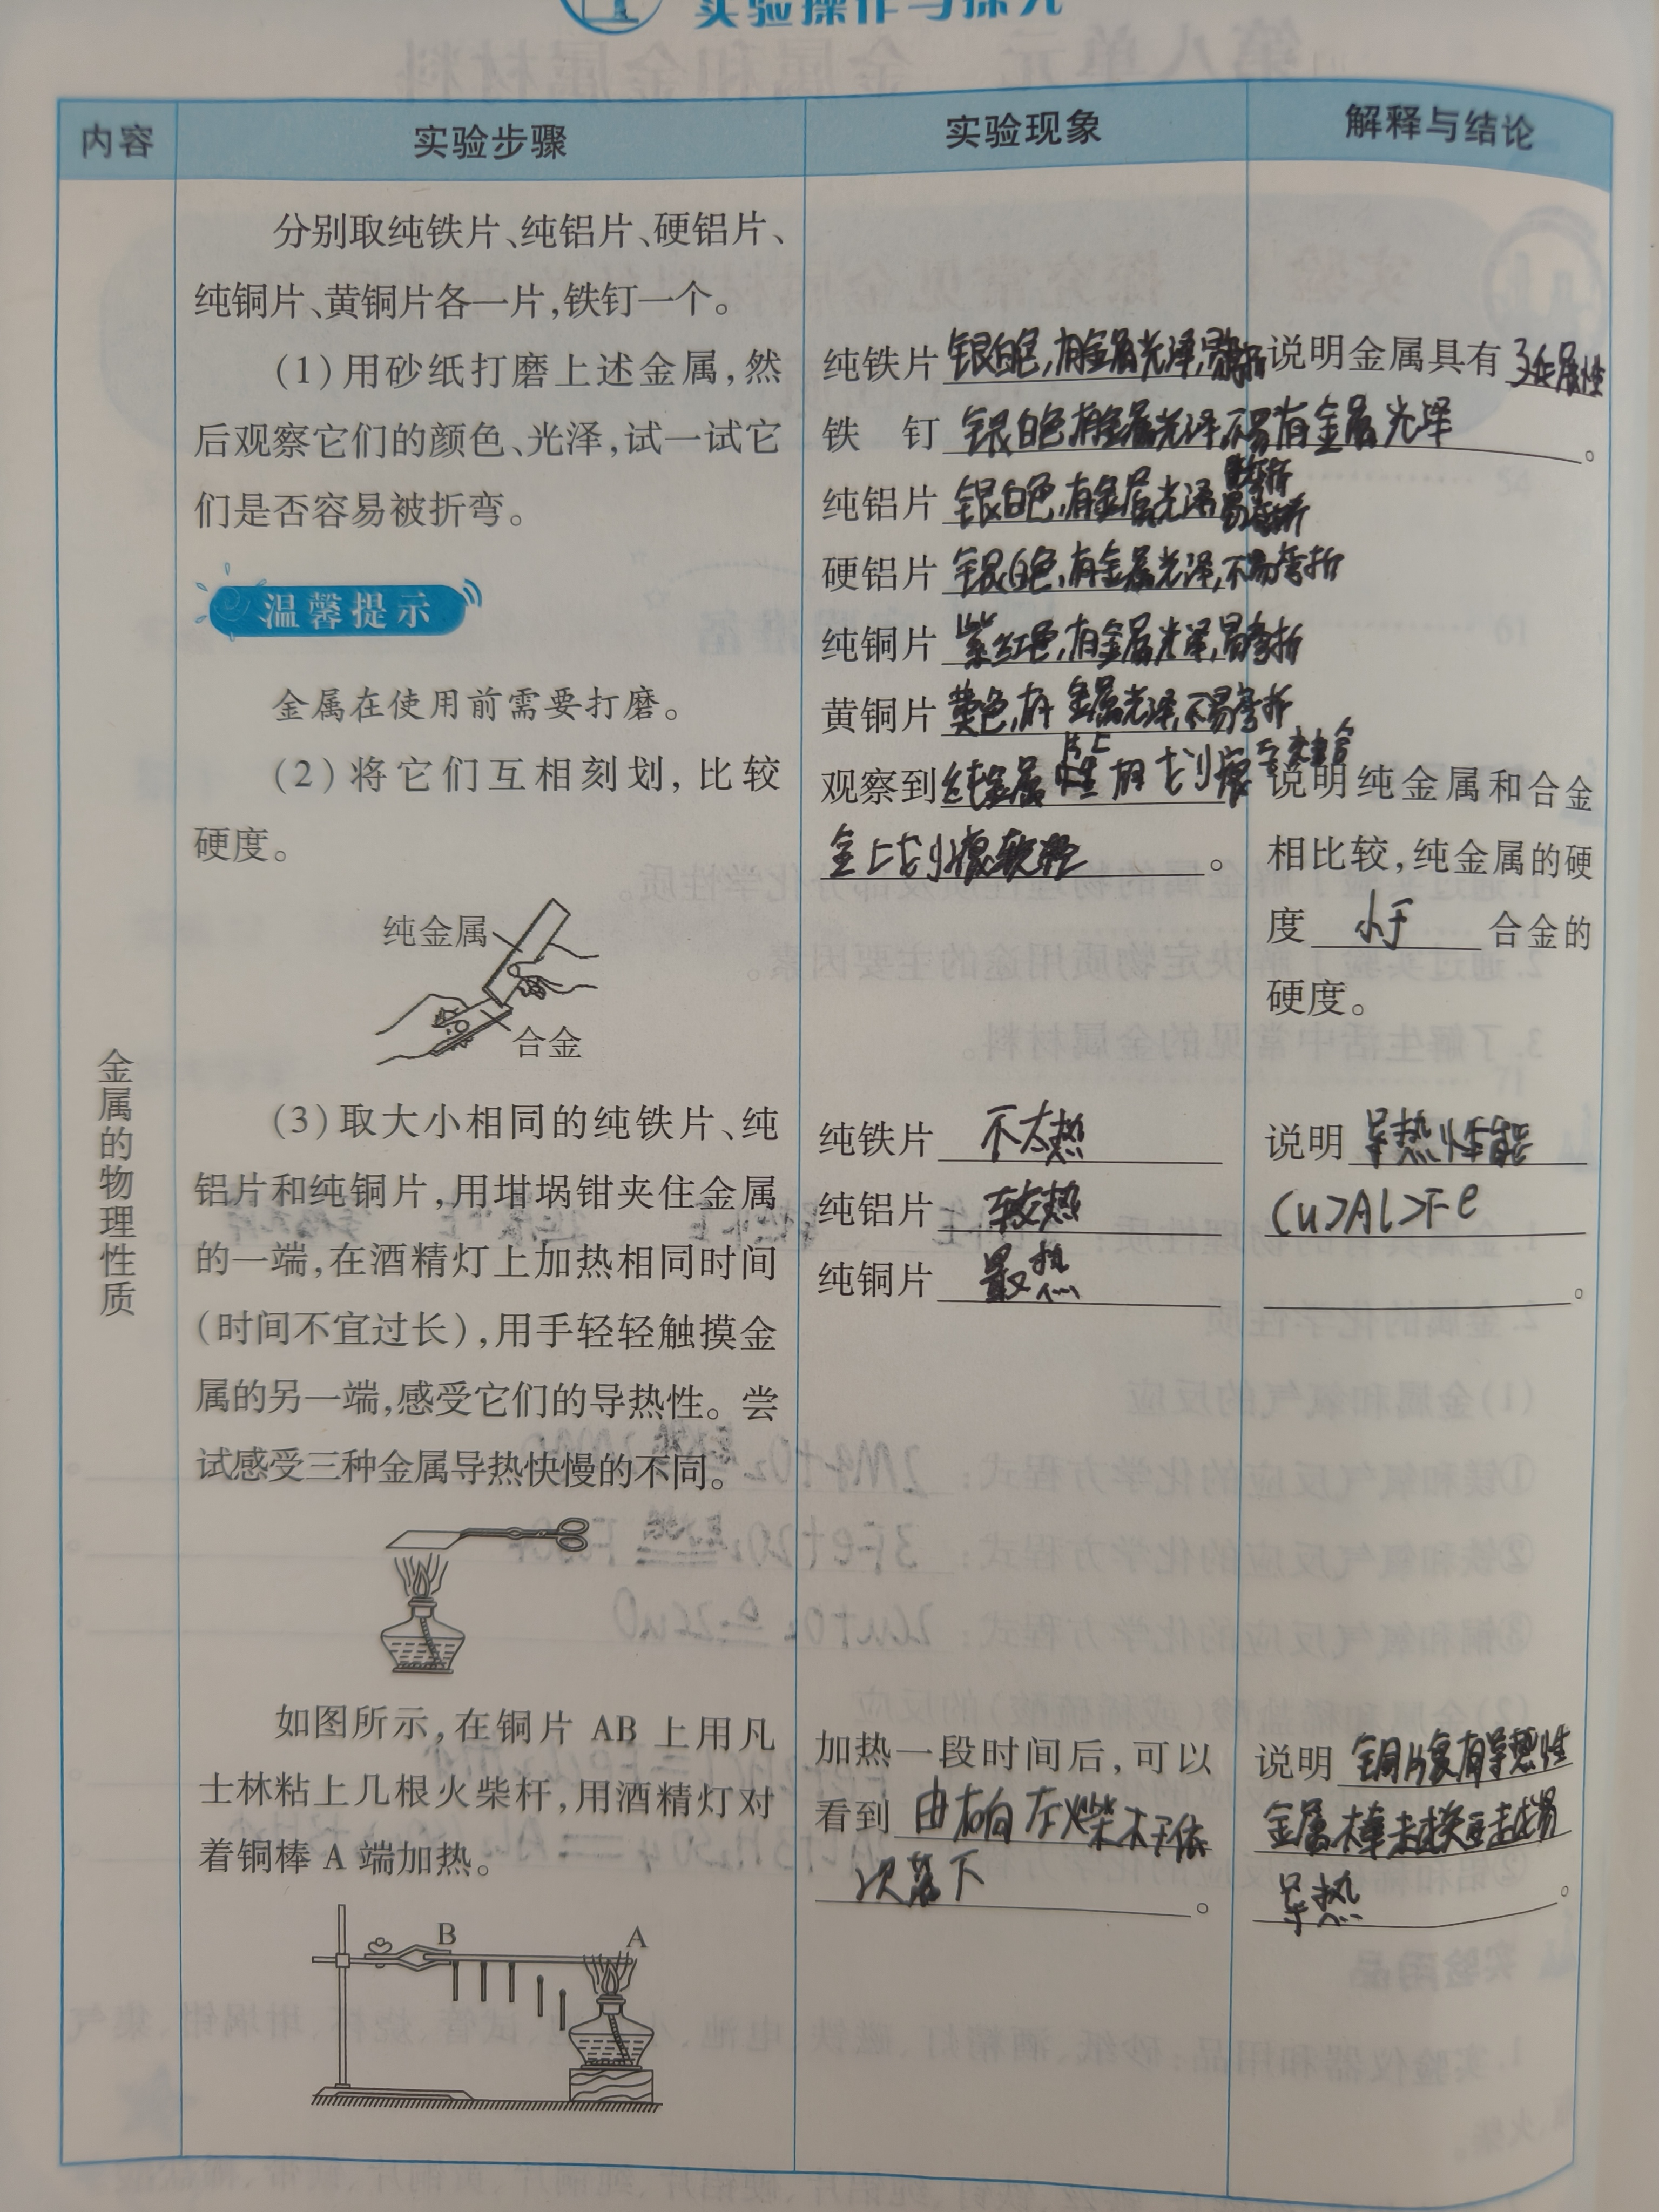 实验操作与探究
内容
实验步骤
实验现象
解释与结论
金属的物理性质
分别取纯铁片、纯铝片、硬铝片、
纯铜片、黄铜片各一片,铁钉一个。
(1)用砂纸打磨上述金属,然
后观察它们的颜色、光泽,试一试它
们是否容易被折弯。
温馨提示
金属在使用前需要打磨。
(2)将它们互相刻划,比较
硬度。
纯金属
合金
(3)取大小相同的纯铁片、纯
铝片和纯铜片,用坩埚钳夹住金属
的一端,在酒精灯上加热相同时间
(时间不宜过长),用手轻轻触摸金
属的另一端,感受它们的导热性。尝
试感受三种金属导热快慢的不同。
如图所示,在铜片 AB 上用凡
士林粘上几根火柴杆,用酒精灯对
着铜棒 A 端加热。
B
A
纯铁片 银白色,有金属光泽,易
铁 钉 银白色,有金属光泽,不易
纯铝片 银白色,有金属光泽 易弯折
硬铝片 银白色,有金属光泽,不易弯折
纯铜片 紫红色,有金属光泽,易弯折
黄铜片 黄色,有金属光泽,不易弯折
观察到 纯金属片上 有划痕
金上划痕较轻 。
纯铁片 不太热
纯铝片 较热
纯铜片 最热
加热一段时间后,可以
看到 由右向左火柴杆依
次落下 。
说明金属具有 延展性
有金属光泽 。
说明纯金属和合金
相比较,纯金属的硬
度 小于 合金的
硬度。
说明 导热性能
Cu>Al>Fe
。
说明 铜片具有导热性
金属棒 越易
导热 。